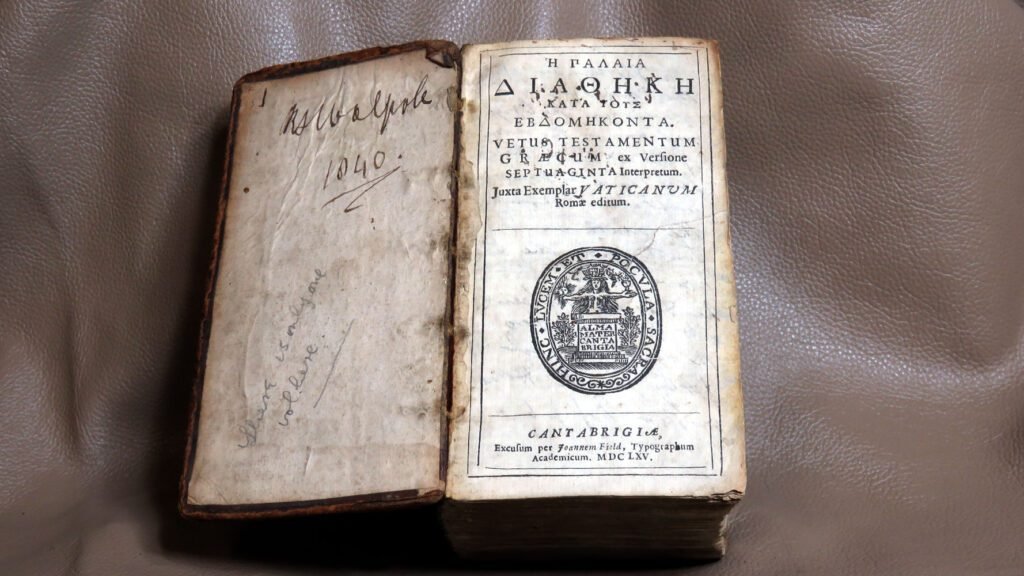 Walpole
1840.
there is only one
vol here.
Η ΠΑΛΑΙΑ
ΔΙΑΘΗΚΗ
ΚΑΤΑ ΤΟΥΣ
ΕΒΔΟΜΗΚΟΝΤΑ.
VETUS TESTAMENTUM
GRÆCUM ex Versione
SEPTUAGINTA Interpretum.
Juxta Exemplar VATICANUM
Romæ editum.
HINC · LUCEM · ET · POCULA · SACRA
ALMA
MATER
CANTA
BRIGIA
CANTABRIGIÆ,
Excusum per Joannem Field, Typographum
Academicum. MDCLXV.